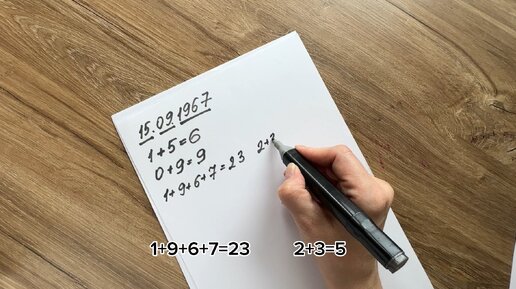 15.09.1967
1+5=6
0+9=9
1+9+6+7=23 2+3
1+9+6+7=23 2+3=5